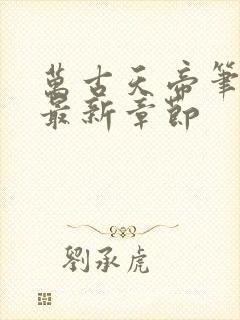 萬古天帝筆
最新章節
劉承虎